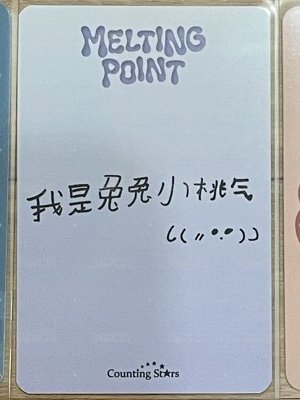 MELTING
POINT
我是兔兔小桃气
((〃•.•))
Counting Stars